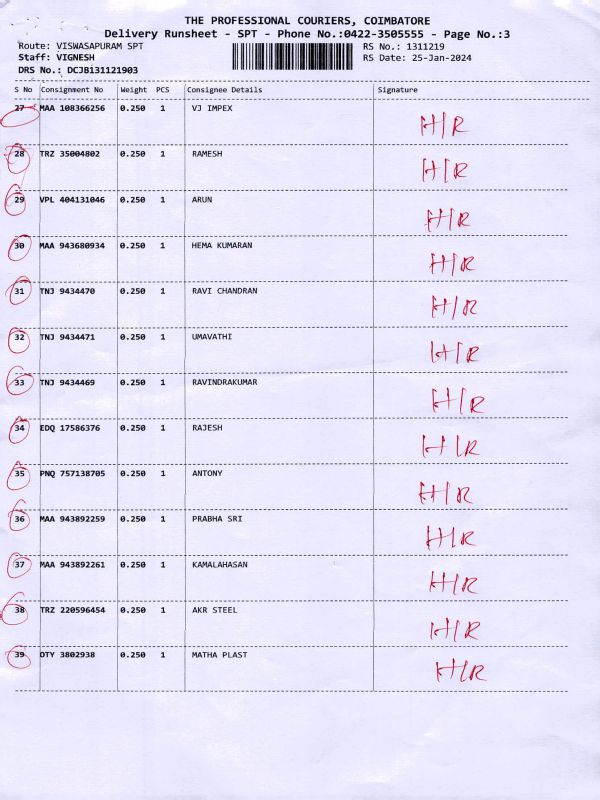 THE PROFESSIONAL COURIERS, COIMBATORE
Delivery Runsheet - SPT - Phone No.:0422-3505555 - Page No.:3
Route: VISWASAPURAM SPT RS No.: 1311219
Staff: VIGNESH RS Date: 25-Jan-2024
DRS No.: DCJB131121903
S No Consignment No Weight PCS Consignee Details Signature
27 MAA 108366256 0.250 1 VJ IMPEX H/R
28 TRZ 35004802 0.250 1 RAMESH H/R
29 VPL 404131046 0.250 1 ARUN H/R
30 MAA 943680934 0.250 1 HEMA KUMARAN H/R
31 TNJ 9434470 0.250 1 RAVI CHANDRAN H/R
32 TNJ 9434471 0.250 1 UMAVATHI H/R
33 TNJ 9434469 0.250 1 RAVINDRAKUMAR H/R
34 EDQ 17586376 0.250 1 RAJESH H/R
35 PNQ 757138705 0.250 1 ANTONY H/R
36 MAA 943892259 0.250 1 PRABHA SRI H/R
37 MAA 943892261 0.250 1 KAMALAHASAN H/R
38 TRZ 220596454 0.250 1 AKR STEEL H/R
39 OTY 3802938 0.250 1 MATHA PLAST H/R